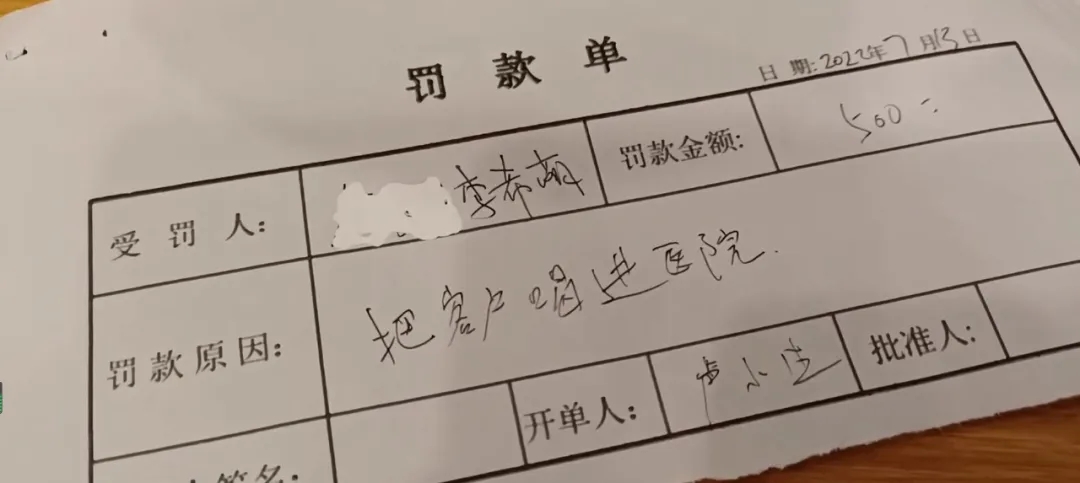 罚款单
日期:2022年7月13日
受罚人: 李希萌 罚款金额: 500
罚款原因: 把客户喝进医院.
签名: 开单人: 卢小生 批准人: